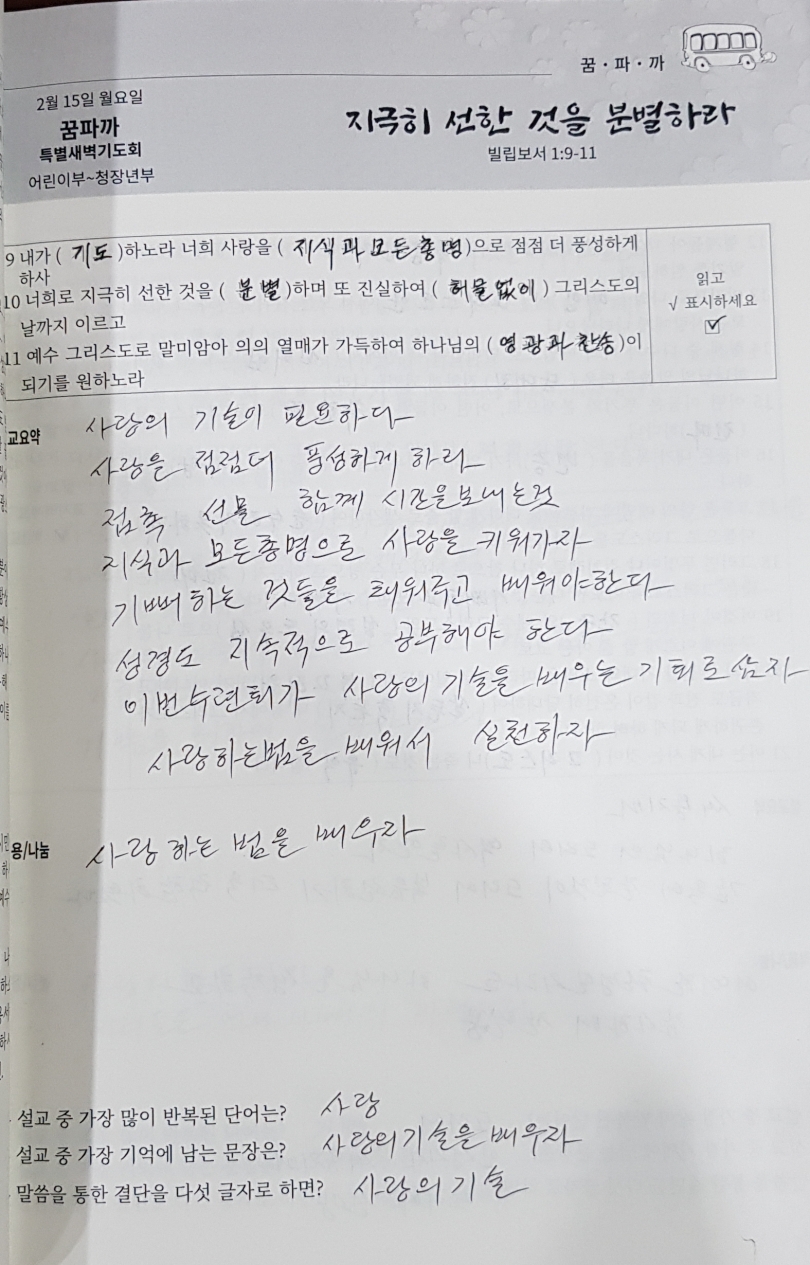 꿈·파·까
2월 15일 월요일
꿈파까
특별새벽기도회
어린이부~청장년부
지극히 선한 것을 분별하라
빌립보서 1:9-11
9 내가 ( 기도 )하노라 너희 사랑을 ( 지식과 모든 총명 )으로 점점 더 풍성하게
하사
10 너희로 지극히 선한 것을 ( 분별 )하며 또 진실하여 ( 허물없이 ) 그리스도의
날까지 이르고
11 예수 그리스도로 말미암아 의의 열매가 가득하여 하나님의 ( 영광과 찬송 )이
되기를 원하노라
읽고
√ 표시하세요
☑
교요약
사랑의 기술이 필요하다
사랑을 점점더 풍성하게 하라
접촉 선물 함께 시간을보내는것
지식과 모든총명으로 사랑을 키워가자
기뻐하는 것들을 채워주고 배워야한다
성경도 지속적으로 공부해야 한다
이번수련회가 사랑의 기술을 배우는 기회로 삼자
사랑하는법을 배워서 실천하자
용/나눔
사랑 하는 법을 배우라
설교 중 가장 많이 반복된 단어는? 사랑
설교 중 가장 기억에 남는 문장은? 사랑의 기술을 배우자
말씀을 통한 결단을 다섯 글자로 하면? 사랑의 기술